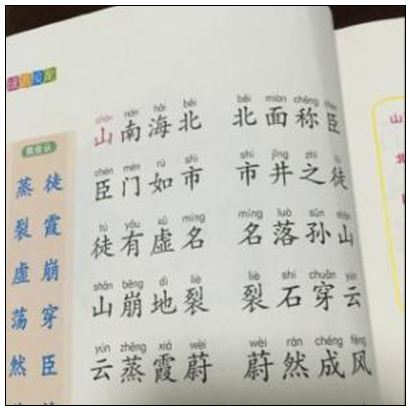 我会认
蒸 徒
裂 霞
虚 崩
荡 穿
然 臣
shān nán hǎi běi běi miàn chēng chén
山南海北 北面称臣
chén mén rú shì shì jǐng zhī tú
臣门如市 市井之徒
tú yǒu xū míng míng luò sūn shān
徒有虚名 名落孙山
shān bēng dì liè liè shí chuān yún
山崩地裂 裂石穿云
yún zhēng xiá wèi wèi rán chéng fēng
云蒸霞蔚 蔚然成风
山
北